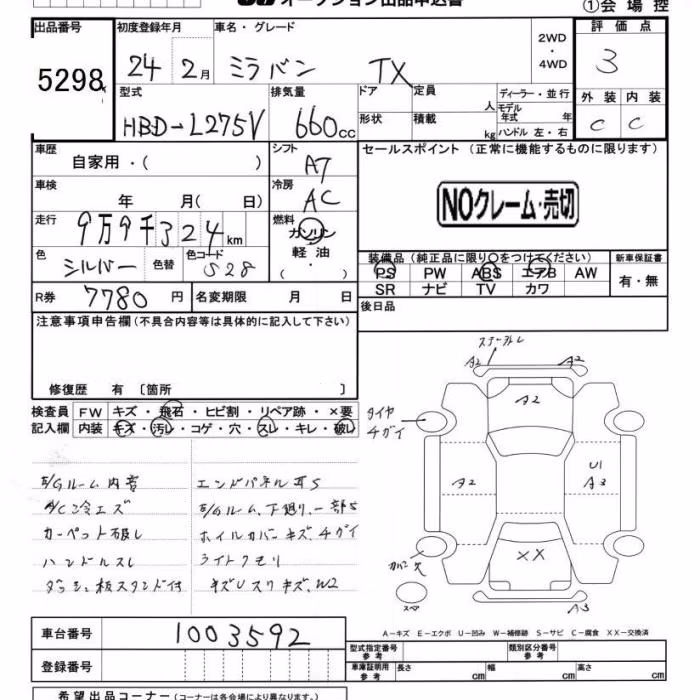 オークション出品申込書
①会場控
出品番号 初度登録年月 車名・グレード 評価点
5298 24 2月 ミラバン TX 2WD・4WD 3
型式 排気量 ドア 定員 人 ディーラー・並行 外装 内装
HBD-L275V 660cc 形状 積載 kg モデル年式 年 C C
ハンドル 左・右
車歴 自家用・( ) シフト A7 セールスポイント (正常に機能するものに限ります)
車検 年 月( 日) 冷房 AC
NOクレーム・売切
走行 9万9千324km 燃料 ガソリン・軽油・( )
色 シルバー 色替 色コード S28
装備品 (純正品に限り○をつけてください) 新車保証書
PS PW ABS エアB AW 有・無
SR ナビ TV カワ
R券 7780円 名変期限 月 日
後日品
注意事項申告欄(不具合内容等は具体的に記入して下さい)
修復歴 有 [箇所 ]
検査員記入欄 FW キズ・飛石・ヒビ割・リペア跡・×要
内装 キズ・汚レ・コゲ・穴・スレ・キレ・破レ
E/Gルーム内音 エンドパネル
A/C冷エズ E/Gルーム、下廻り、一部S
カーペット破レ ホイルカバーキズ、チガイ
ハンドルスレ ライトクモリ
ダッシュ板スタンド付 キズUスリキズ、W2
A2
A2
A2
タイヤチガイ
A2
U1
A3
カバー欠
XX
スペア
A3
A-キズ E-エクボ U-凹み W-補修跡 S-サビ C-腐食 XX-交換済
車台番号 1003592
型式指定番号 参考 類別区分番号 参考
登録番号
車庫証明用 参考 長さ cm 幅 cm 高さ cm
希望出品コーナー(コーナーは各会場により異なります。)